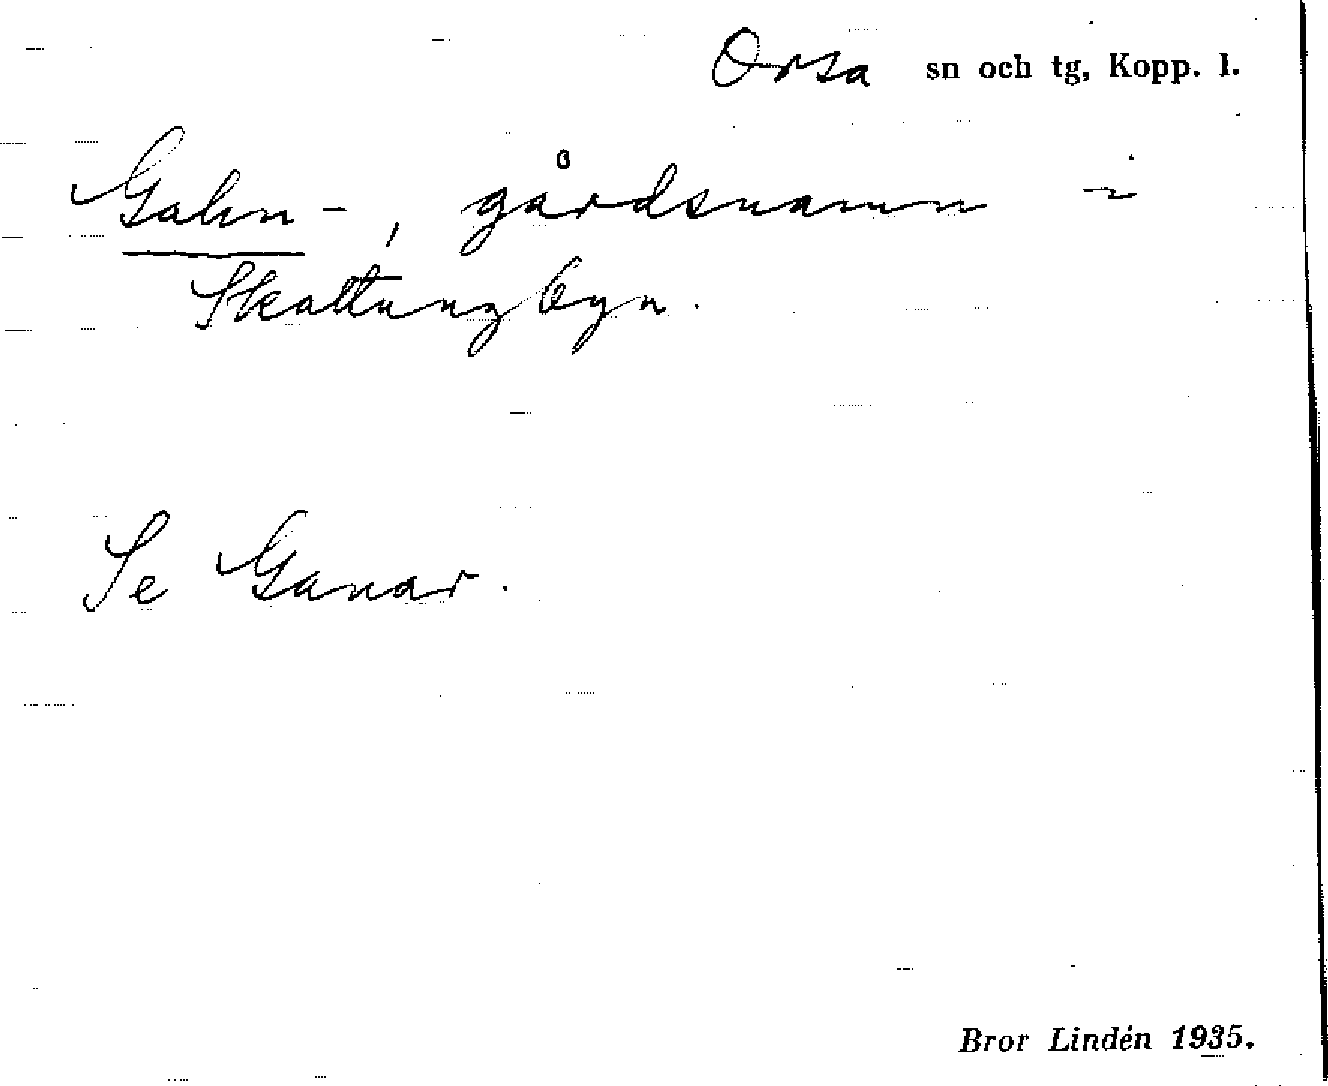 Orsa sn och tg, Kopp. l.
Gahn-, gårdsnamn i
Skattungbyn.
Se Ganar.
Bror Lindén 1935.